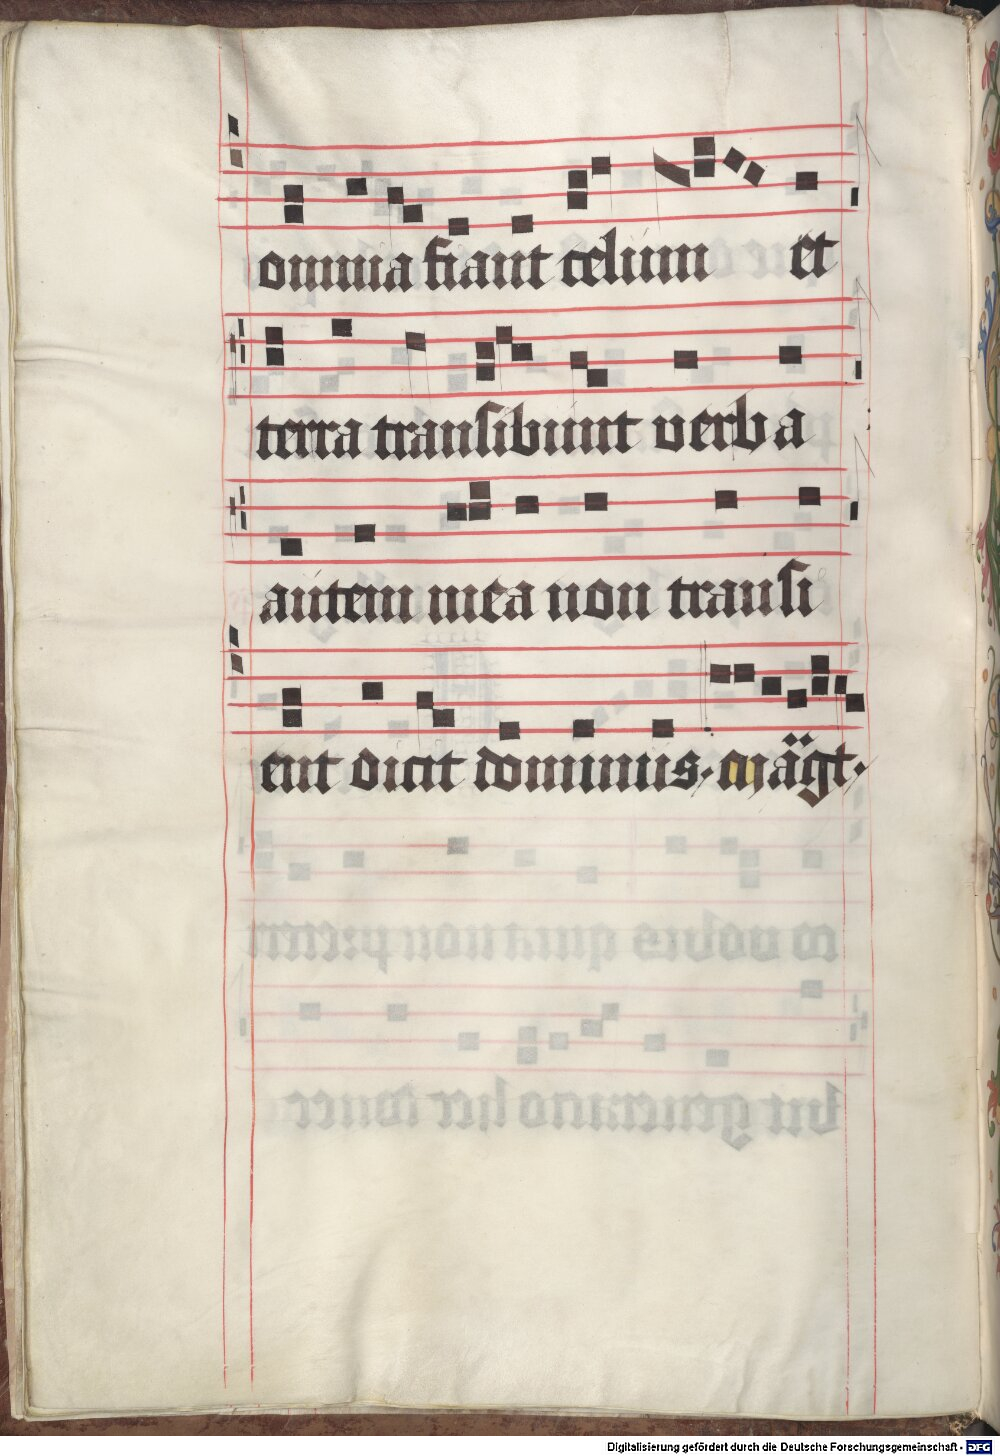 omnia fiant celum et
terra transibunt verba
autem mea non transi
ent dicit dominus. Mägt.
Digitalisierung gefördert durch die Deutsche Forschungsgemeinschaft - DFG